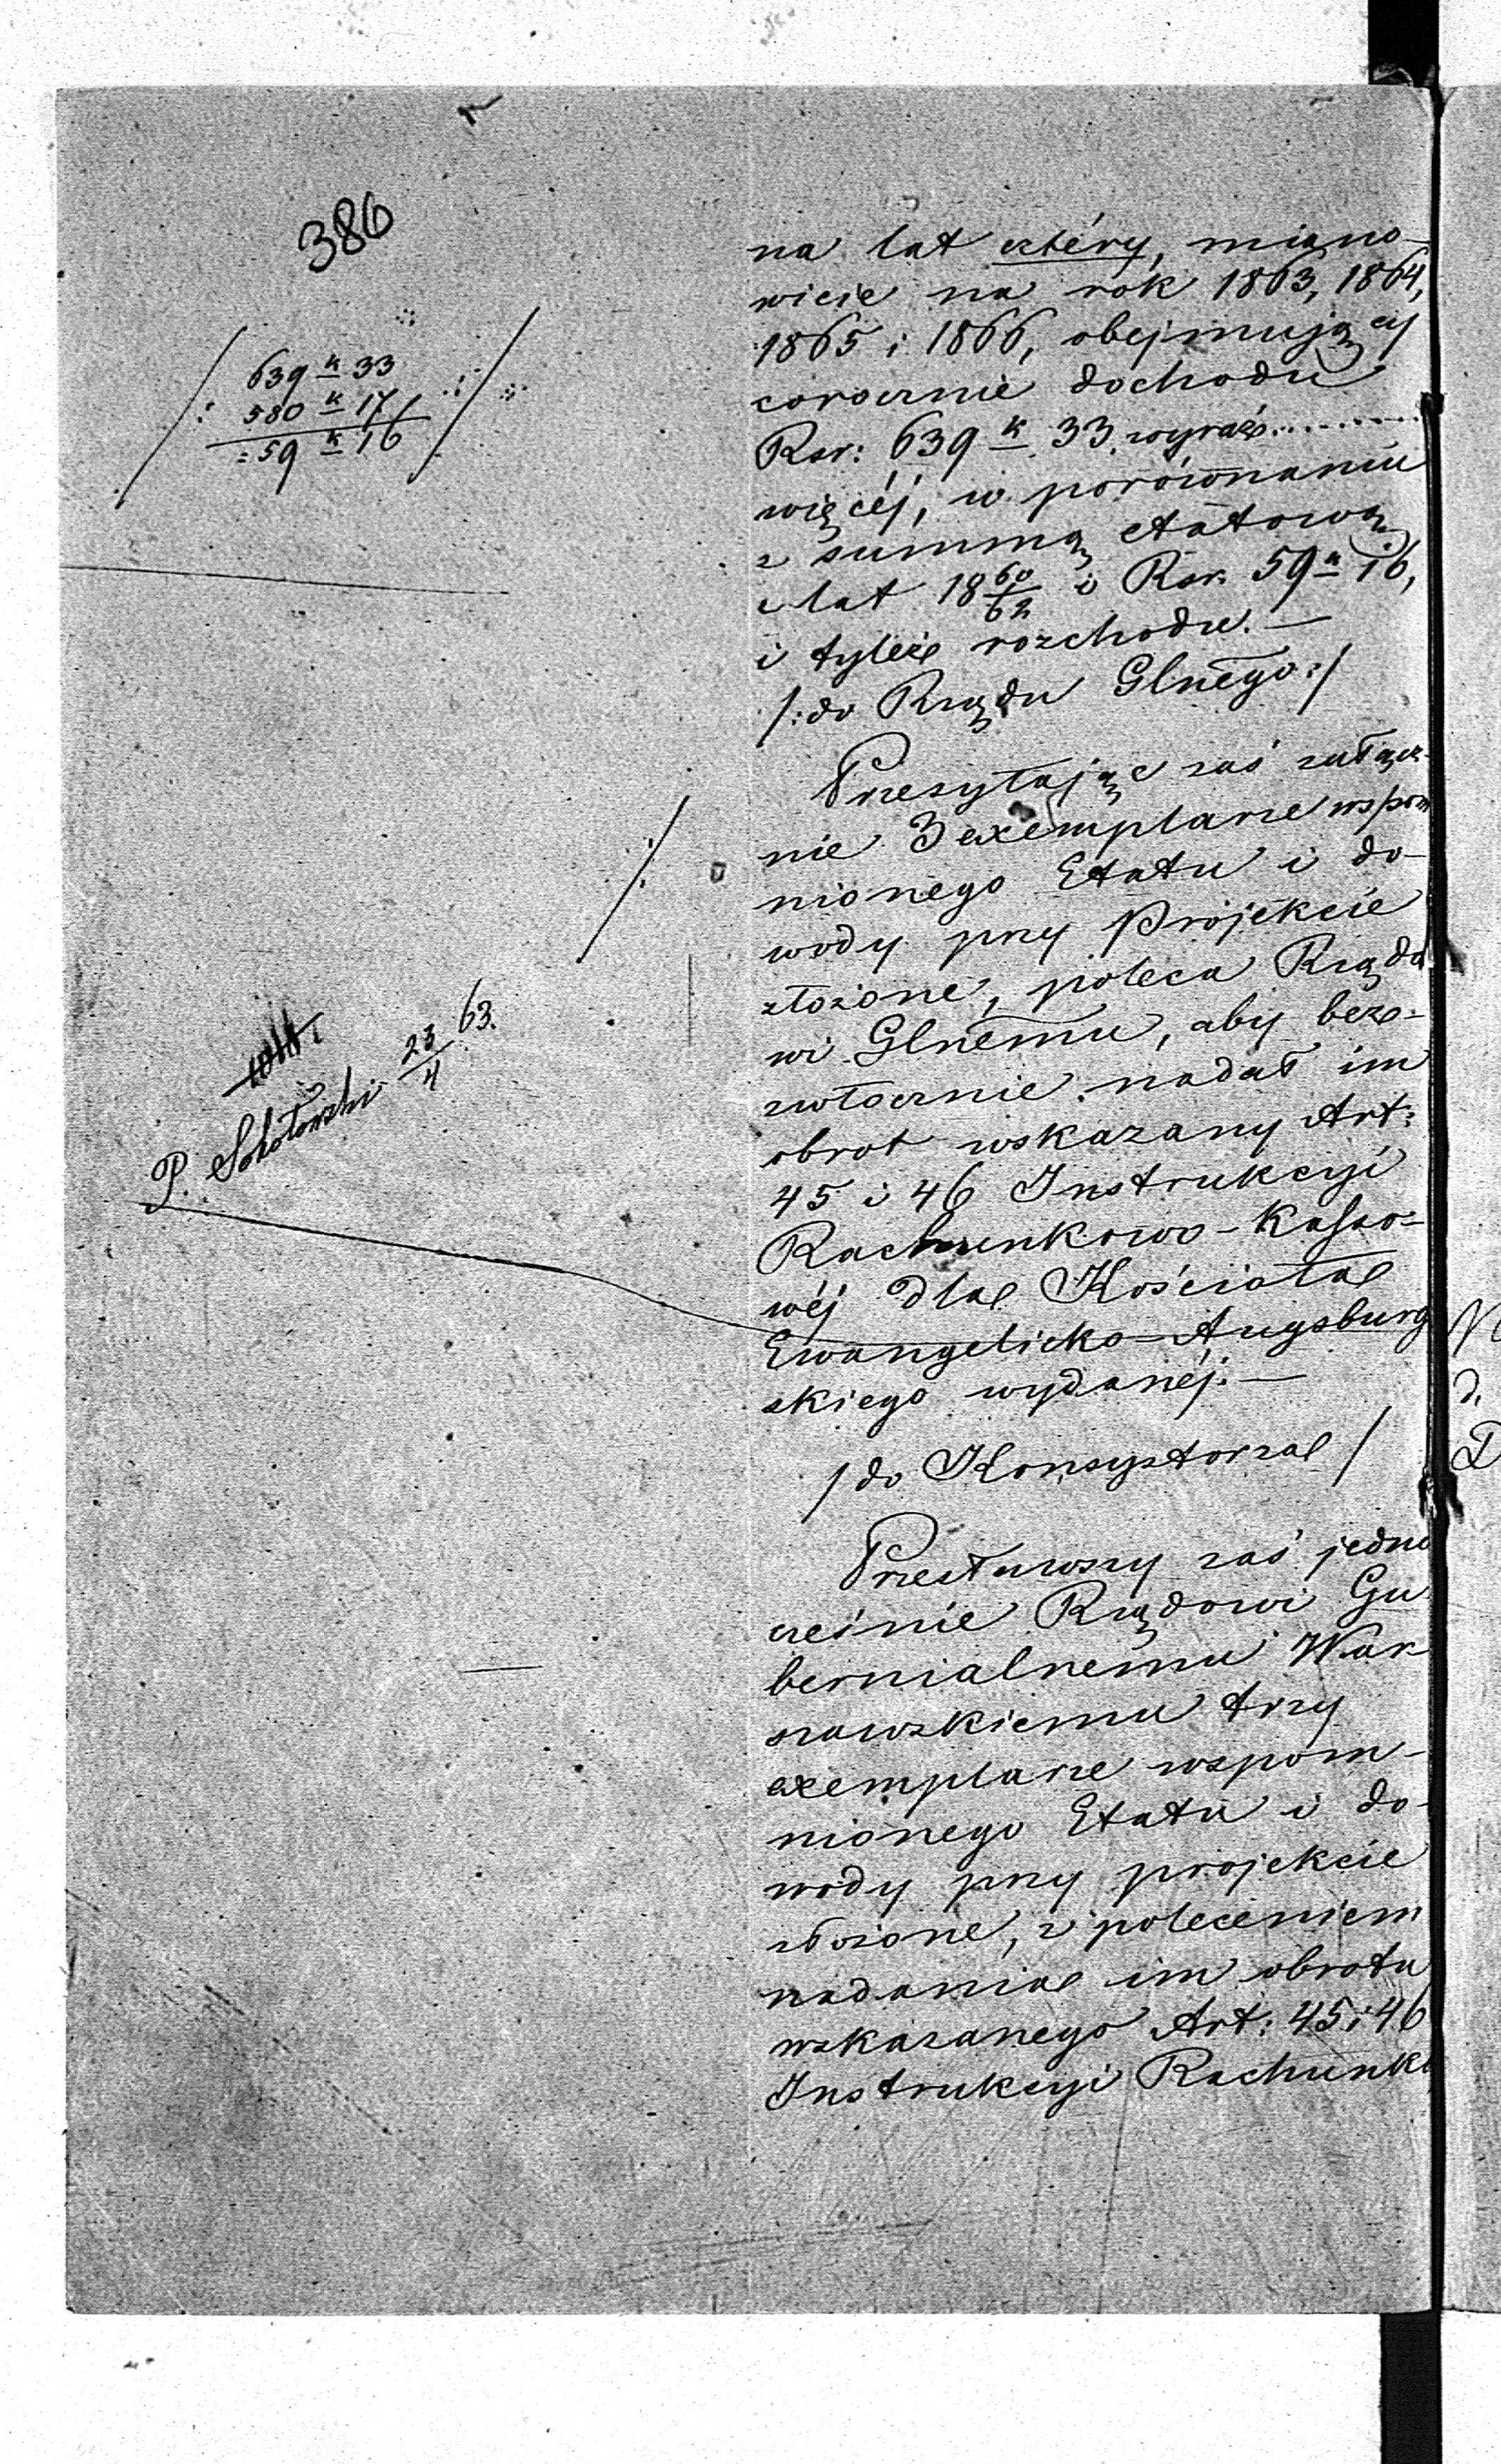 386
639 k 33
580 k 17
= 59 k 16
P. Sokołowski 23/4 63.
na lat cztéry, miano-
wicie na rok 1863, 1864,
1865 i 1866, obejmujący
corocznie dochodu
Rsr: 639 k 33. wyraź.........
więcéj, w porównaniu
z summą etatową
z lat 18 60/62 o Rsr. 59 k 16,
i tyleż rozchodu. —
/: do Rządu Glnego :/
Przesyłając zaś załącz-
nie 3 exemplarze wspom
nionego Etatu i do-
wody przy Projekcie
złożone, poleca Rządo
wi Glnemu, aby bez-
zwłocznie nadał im
obrot wskazany Art:
45 i 46 Instrukcyi
Rachunkowo-Kasso-
wéj dla Kościoła
Ewangelicko-Augsburg
skiego wydanéj. —
/ do Konsystorza /
Przesławszy zaś jedno
cześnie Rządowi Gu
bernialnemu War-
szawskiemu trzy
exemplarze wspom-
nionego Etatu i do-
wody przy projekcie
złożone, z poleceniem
nadania im obrotu
wskazanego Art: 45 i 46
Instrukcyi Rachunk